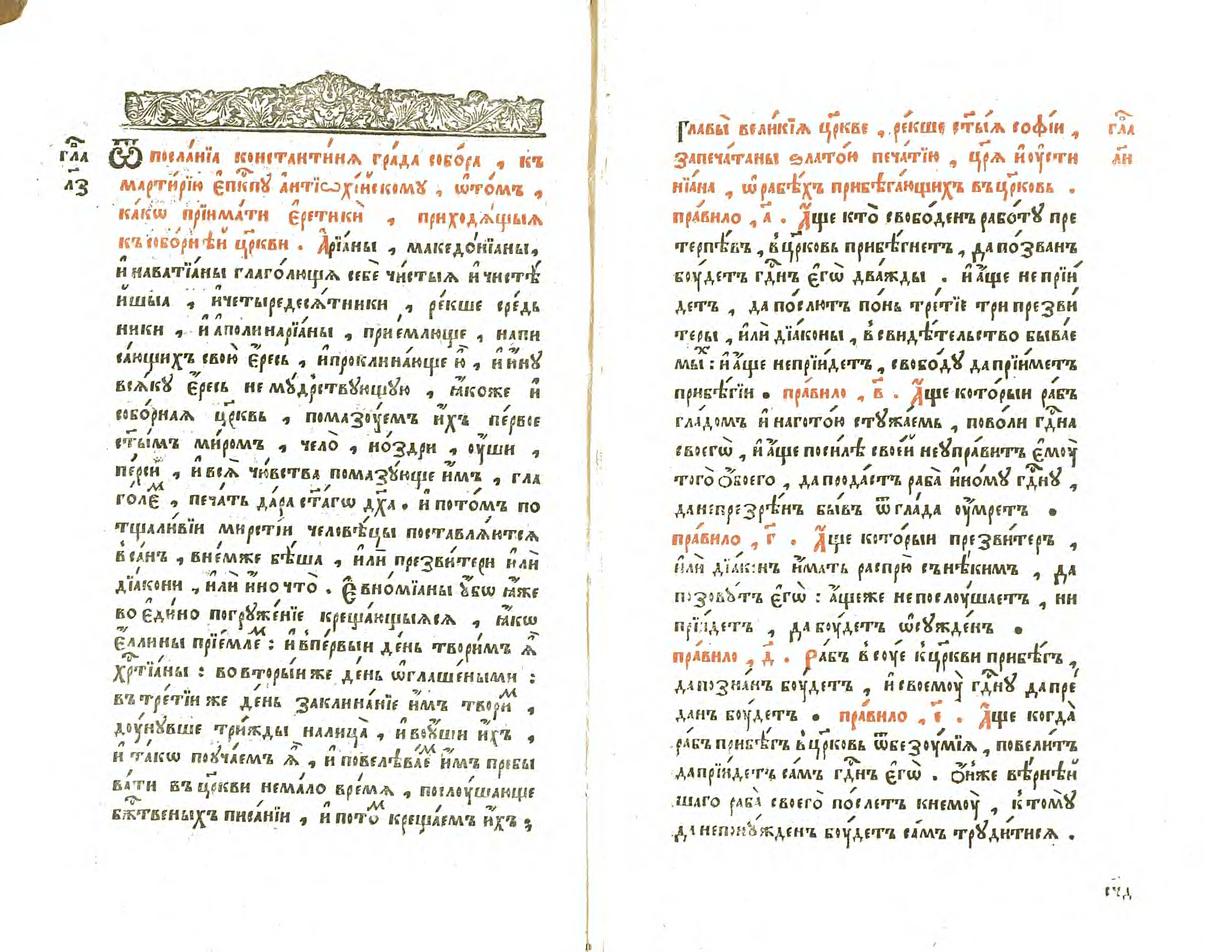 гла̑
л҃з
Ѿ посла́нїѧ константи́нѧ гра́да собо́ра , къ
марти́рїю є҆пⷭ҇кпу а҆нтїѡхі́йскому , ѡ҆то́мъ ,
ка́кѡ прїима́ти є҆ретикѝ , приходѧ́щыѧ
къ собо́рнѣй цр҃кви . А҆рїа́ны , македо́нїаны,
и҆ наватїа́ны глаго́лющѧ себѐ чи́стыѧ и҆ чистѣ
и҆шыѧ , и҆четыредесѧ́тники , ре́кше сре́дь
ники , и҆ а҆полинарїа́ны , прїе́млюще , напи
са́ющихъ свою̀ є҆́ресь , и҆проклина́юще ю҆̀ , и҆ и҆́ну
всѧ́ку є҆́ресь не мꙋ́дрствующую , ꙗ҆́коже и҆
собо́рнаѧ цр҃квь , помазꙋ́емъ и҆̀хъ пе́рвое
ст҃ы́мъ ми́ромъ , чело̀ , но́здри , оу҆́ши ,
пе́рси , и҆ всѧ̀ чю́вства помазꙋ́юще и҆̀мъ , гла
го́леⷨ , печа́ть да́ра ст҃а́гѡ дх҃а . и҆ пото́мъ по
тщали́вїи мирстїи человѣ́цы поставлѧ́ютсѧ
в са́нъ , вне́мже бѣ́ша , и҆лѝ презви́тери и҆лѝ
дїа́кони , и҆лѝ и҆́но что̀ . Є҆вно́мїаны ᲂу҆́бѡ ꙗ҆̀же
во є҆ди́но погрꙋже́нїе креща́ющыѧсѧ , ꙗ҆́кѡ
є҆́ллины прїе́млеⷨ : и҆ в пе́рвыи де́нь твори́мъ ѧ҆̀
хрⷭ҇тїа́ны : во вторы́и же де́нь ѡ҆глаше́ными :
въ тре́тїи же де́нь заклина́нїе и҆̀мъ твори́ⷨ ,
дꙋ́нувше три́жды налица̀ , и҆ воу́ши и҆̀хъ ,
и҆ та́кѡ поуча́емъ ѧ҆̀ , и҆ повелѣва́еⷨ и҆̀мъ пребы
ва́ти въ цр҃кви нема́ло вре́мѧ , послꙋ́шающе
бж҃твеныхъ писа́нїи , и҆ пото́ⷨ креща́емъ и҆̀хъ ;
гла̑
л҃и
Главы̀ вели́кїѧ цр҃кве , ре́кше ст҃ы́ѧ софі́и ,
запеча́таны злато́ю печа́тїю , цр҃ѧ̀ и҆оусти
нїа́на , ѡ҆ рабѣ́хъ прибѣга́ющихъ въ цр҃ковь .
пра́вило , а҃ . А҆́ще кто̀ свобо́денъ рабо́тꙋ пре
терпѣ́въ , в цр҃ковь прибѣ́гнетъ , да по́званъ
бꙋ́детъ гдⷭ҇нъ є҆гѡ̀ два́жды . и҆ а҆́ще не прїи́
детъ , да по́слютъ по́нь тре́тїе три презви́
теры , и҆лѝ дїа́коны , в свидѣ́тельство быва́е
мыⷯ : и҆ а҆́ще непрїи́детъ , свобо́дꙋ да прїи́метъ
прибѣ́гїи . пра́вило , в҃ . А҆́ще кото́рыи ра́бъ
гла́домъ и҆ нагото́ю стꙋжа́емь , пово́ли гдⷭ҇на
своегѡ̀ , и҆ а҆́ще по си́лѣ свое́й неупра́витъ є҆мꙋ̀
того̀ ѻ҆бо́его , да прода́стъ раба̀ и҆но́мꙋ гдⷭ҇нꙋ ,
да непрезрѣ́нъ бы́въ ѿ гла́да оу҆́мретъ .
пра́вило , г҃ . А҆́ще кото́рыи презви́теръ ,
и҆лѝ дїа́конъ и҆́мать распрю̀ съ нѣ́кимъ , да
позову́тъ є҆гѡ̀ : а҆́ще же не послꙋ́шаетъ , ни
прїи́детъ , да бꙋ́детъ ѡ҆сꙋжде́нъ .
пра́вило , д҃ . Ра́бъ в сꙋ́е к цр҃кви прибѣ́гъ ,
да позна́нъ бꙋ́детъ , и҆ своемꙋ̀ гдⷭ҇нꙋ да пре́
данъ бꙋ́детъ . пра́вило , є҃ . А҆́ще когда̀
ра́бъ прибѣ́гъ в цр҃ковь ѿ безꙋ́мїѧ , повели́тъ
да прїи́детъ са́мъ гдⷭ҇нъ є҆гѡ̀ . Ѻ҆́нже вѣ́рнѣй
шаго раба̀ своего̀ по́слетъ к немꙋ̀ , к томꙋ̀
да непонꙋ́жденъ бꙋ́детъ са́мъ трꙋди́тисѧ .
сч҃д